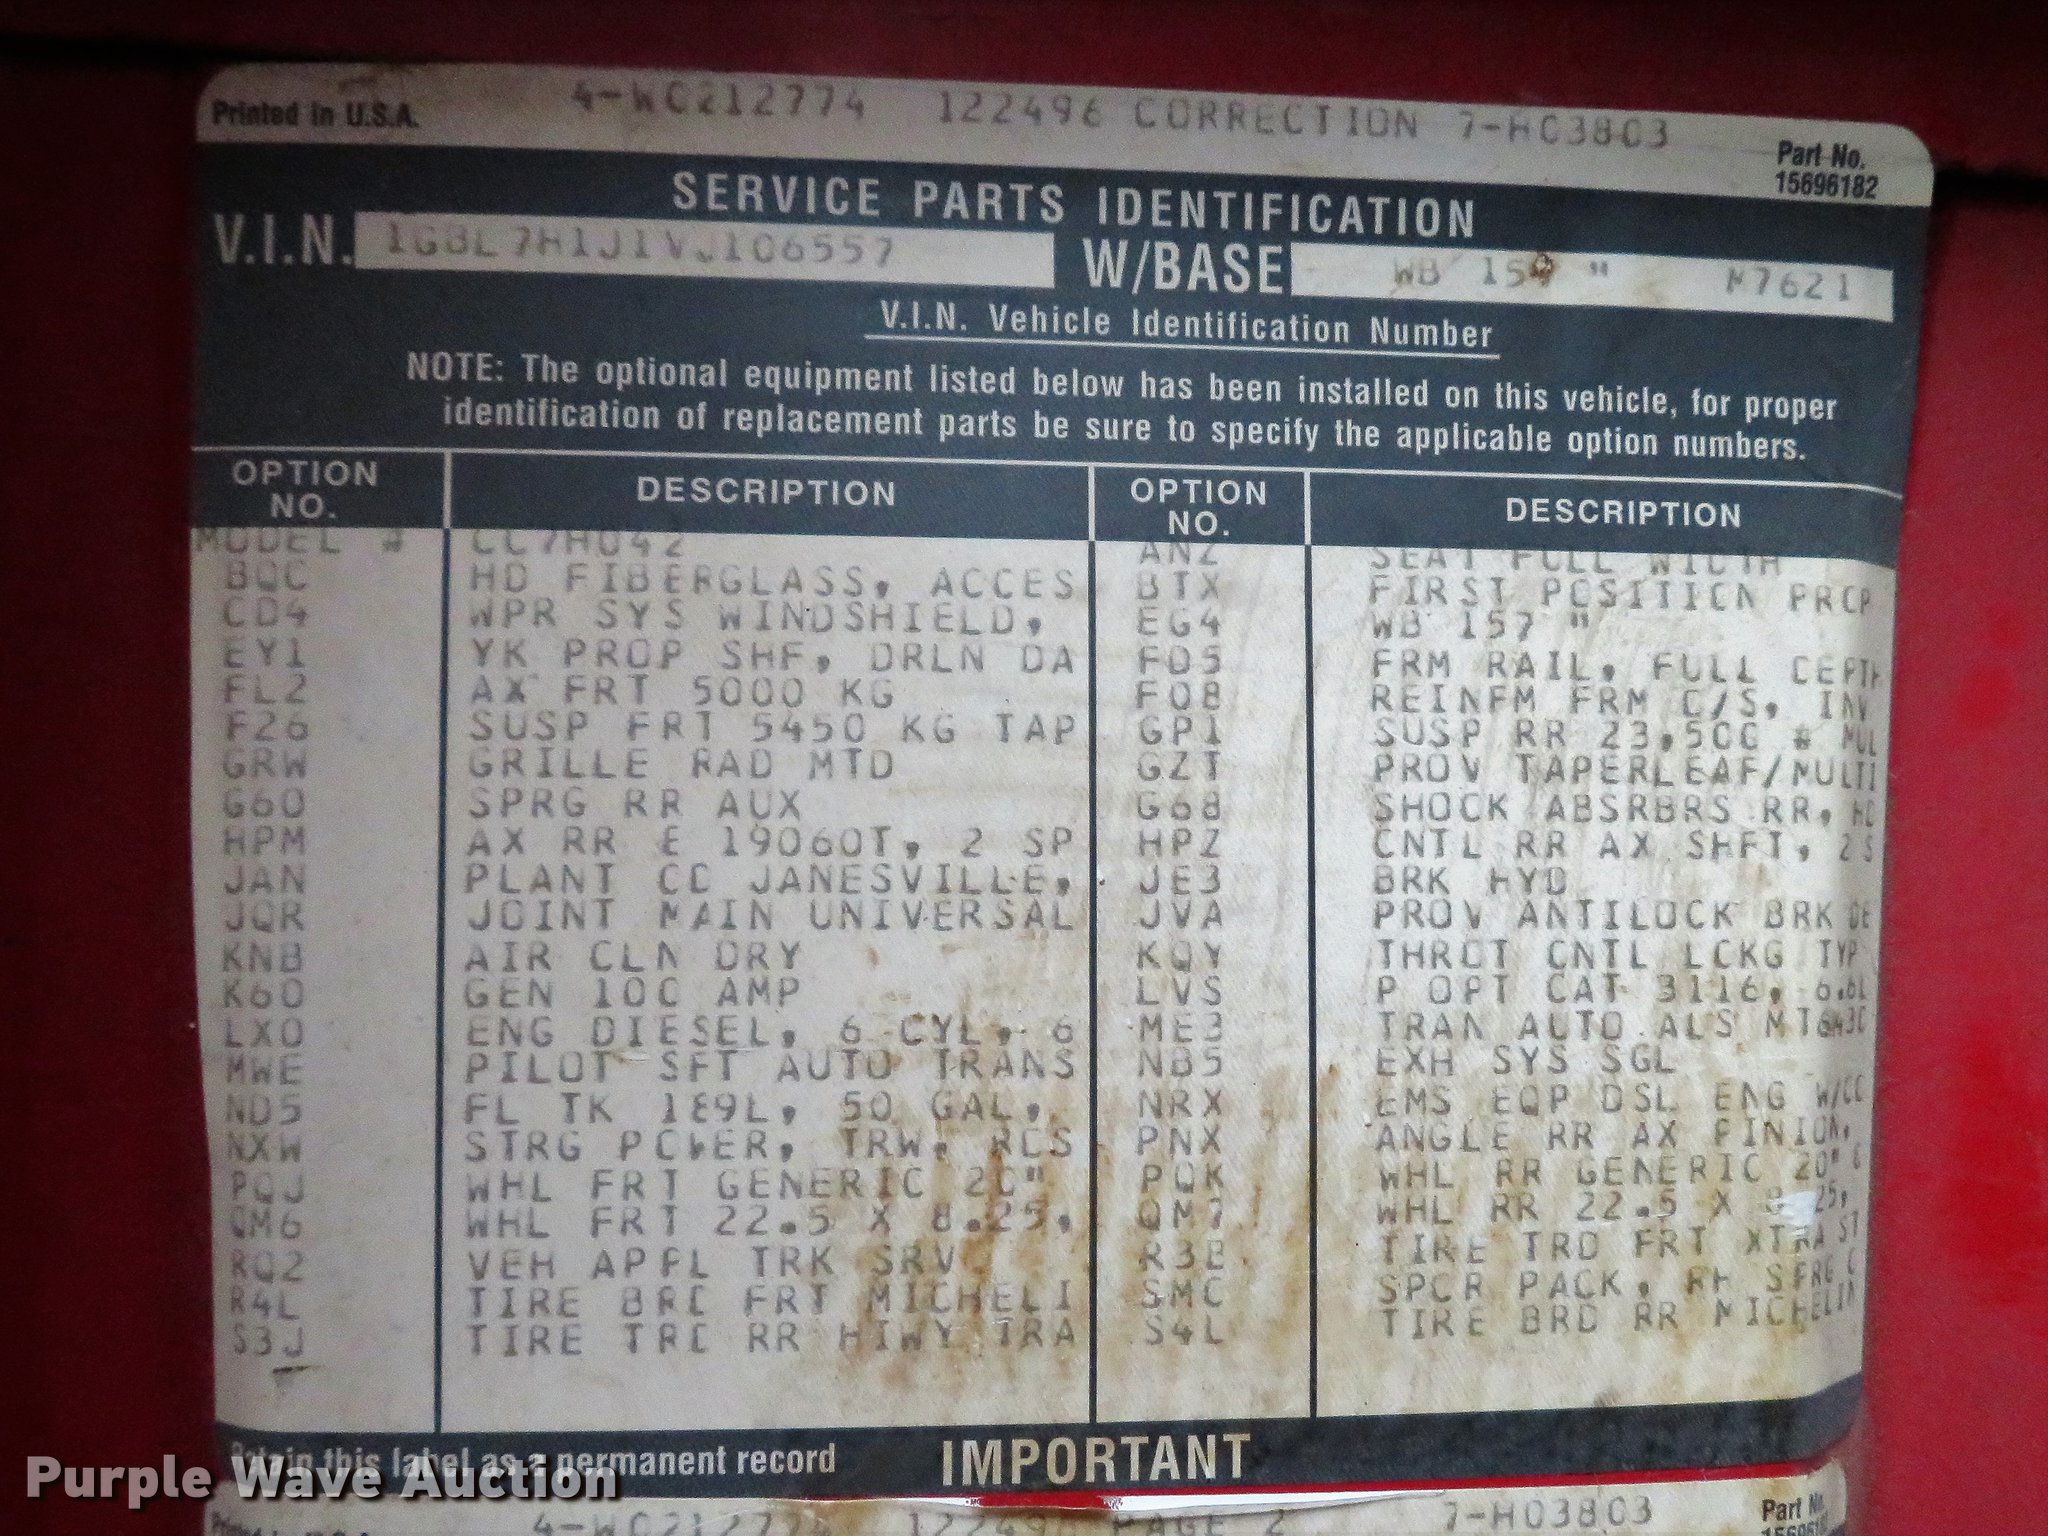 Printed in U.S.A. 4-WC212774 122496 CORRECTION 7-HC3803
Part No.
15696182
SERVICE PARTS IDENTIFICATION
V.I.N. 1GBL7H1J1VJ106557 W/BASE WB 157 " N7621
V.I.N. Vehicle Identification Number
NOTE: The optional equipment listed below has been installed on this vehicle, for proper
identification of replacement parts be sure to specify the applicable option numbers.
OPTION NO. DESCRIPTION OPTION NO. DESCRIPTION
MODEL # CC7H042 ANZ SEAT FULL WIDTH
BOC HD FIBERGLASS, ACCES BTX FIRST POSITION PROP
CD4 WPR SYS WINDSHIELD, EG4 WB 157 "
EY1 YK PROP SHF, DRLN DA F05 FRM RAIL, FULL DEPTH
FL2 AX FRT 5000 KG F08 REINFM FRM C/S, INV
F26 SUSP FRT 5450 KG TAP GP1 SUSP RR 23,500 # MUL
GRW GRILLE RAD MTD GZT PROV TAPERLEAF/MULTI
G60 SPRG RR AUX G68 SHOCK ABSRBRS RR, HD
HPM AX RR E 19060T, 2 SP HPZ CNTL RR AX SHFT, 2 S
JAN PLANT CD JANESVILLE, JE3 BRK HYD
JQR JOINT MAIN UNIVERSAL JVA PROV ANTILOCK BRK DE
KNB AIR CLN DRY KQY THROT CNTL LCKG TYP
K60 GEN 100 AMP LVS P OPT CAT 3116, 6.6L
LX0 ENG DIESEL, 6 CYL, 6 ME3 TRAN AUTO ALS MT643C
MWE PILOT SFT AUTO TRANS NB5 EXH SYS SGL
ND5 FL TK 189L, 50 GAL, NRX EMS EQP DSL ENG W/CC
NXW STRG POWER, TRW, RCS PNX ANGLE RR AX PINION,
PQJ WHL FRT GENERIC 20" PQK WHL RR GENERIC 20"
QM6 WHL FRT 22.5 X 8.25, QM7 WHL RR 22.5 X 8.25,
RQ2 VEH APPL TRK SRV R3B TIRE TRD FRT XTRA ST
R4L TIRE BRD FRT MICHELI SMC SPCR PACK, RH SPRG C
S3J TIRE TRD RR HIWY TRA S4L TIRE BRD RR MICHELIN
Retain this label as a permanent record IMPORTANT
Purple Wave Auction
4-WC212774 122496 PAGE 2 7-H03803
Part No.